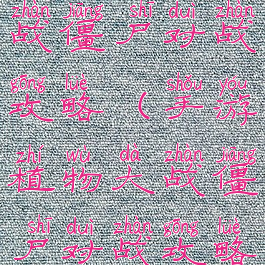 zhàn jiāng shī duì zhàn
战僵尸对战
gōng lüè shǒu yóu
攻略（手游
zhí wù dà zhàn jiāng
植物大战僵
shī duì zhàn gōng lüè
尸对战攻略